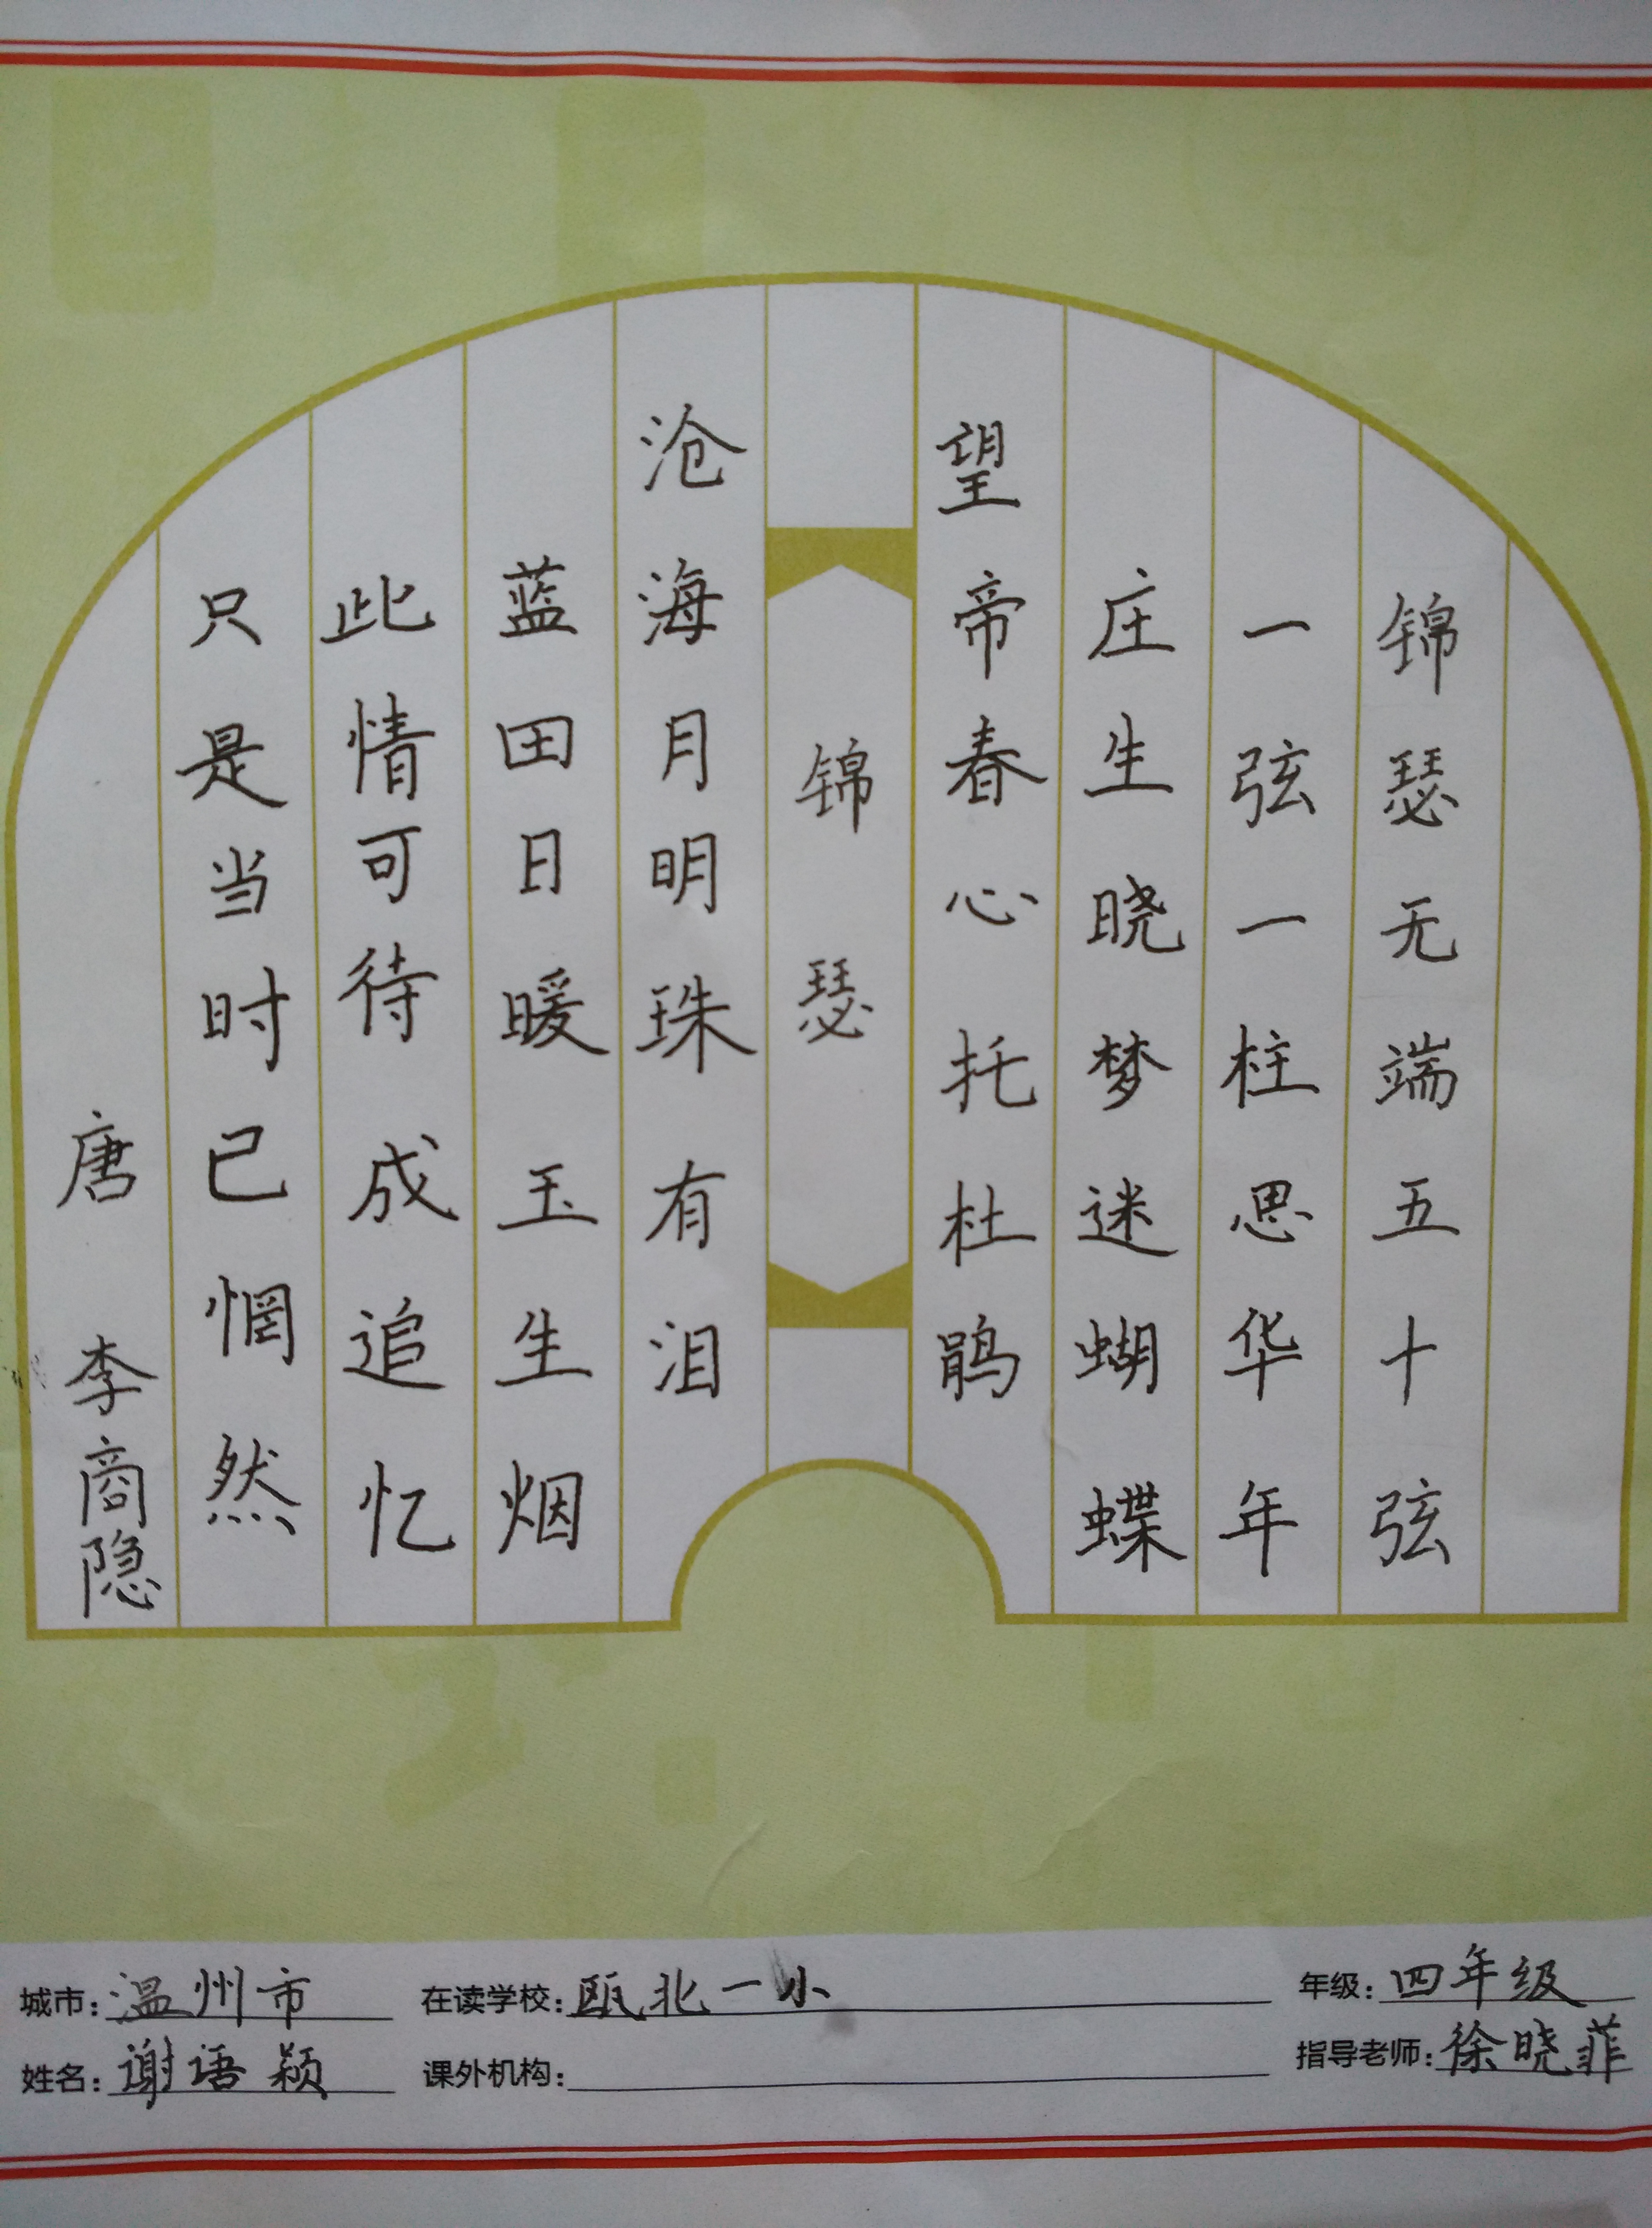 锦瑟无端五十弦
一弦一柱思华年
庄生晓梦迷蝴蝶
望帝春心托杜鹃
锦瑟
沧海月明珠有泪
蓝田日暖玉生烟
此情可待成追忆
只是当时已惘然
唐 李商隐
城市：温州市 在读学校：瓯北一小 年级：四年级
姓名：谢语颖 课外机构： 指导老师：徐晓菲